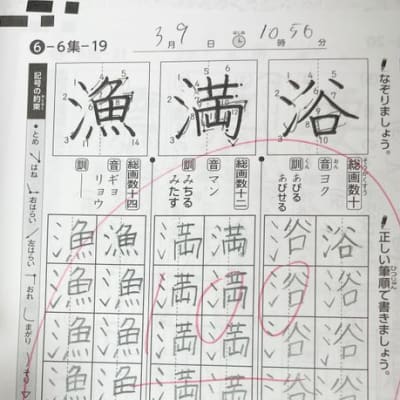 ❻-6集-19
3月9日 10時56分
なぞりましょう。
浴
総画数十
そうかくすう
音 ヨク
おん
訓 あびる
くん
あびせる
満
総画数十二
音 マン
訓 みちる
みたす
漁
総画数十四
音 ギョ
リョウ
訓 ―
記号の約束
・とめ
はね
右はらい
左はらい
おれ
まがり
そり
正しい筆順で書きましょう。
ひつじゅん
浴 浴
浴 浴
浴 浴
浴 浴
満 満
満 満
満 満
満 満
漁 漁
漁 漁
漁 漁
漁 漁
100